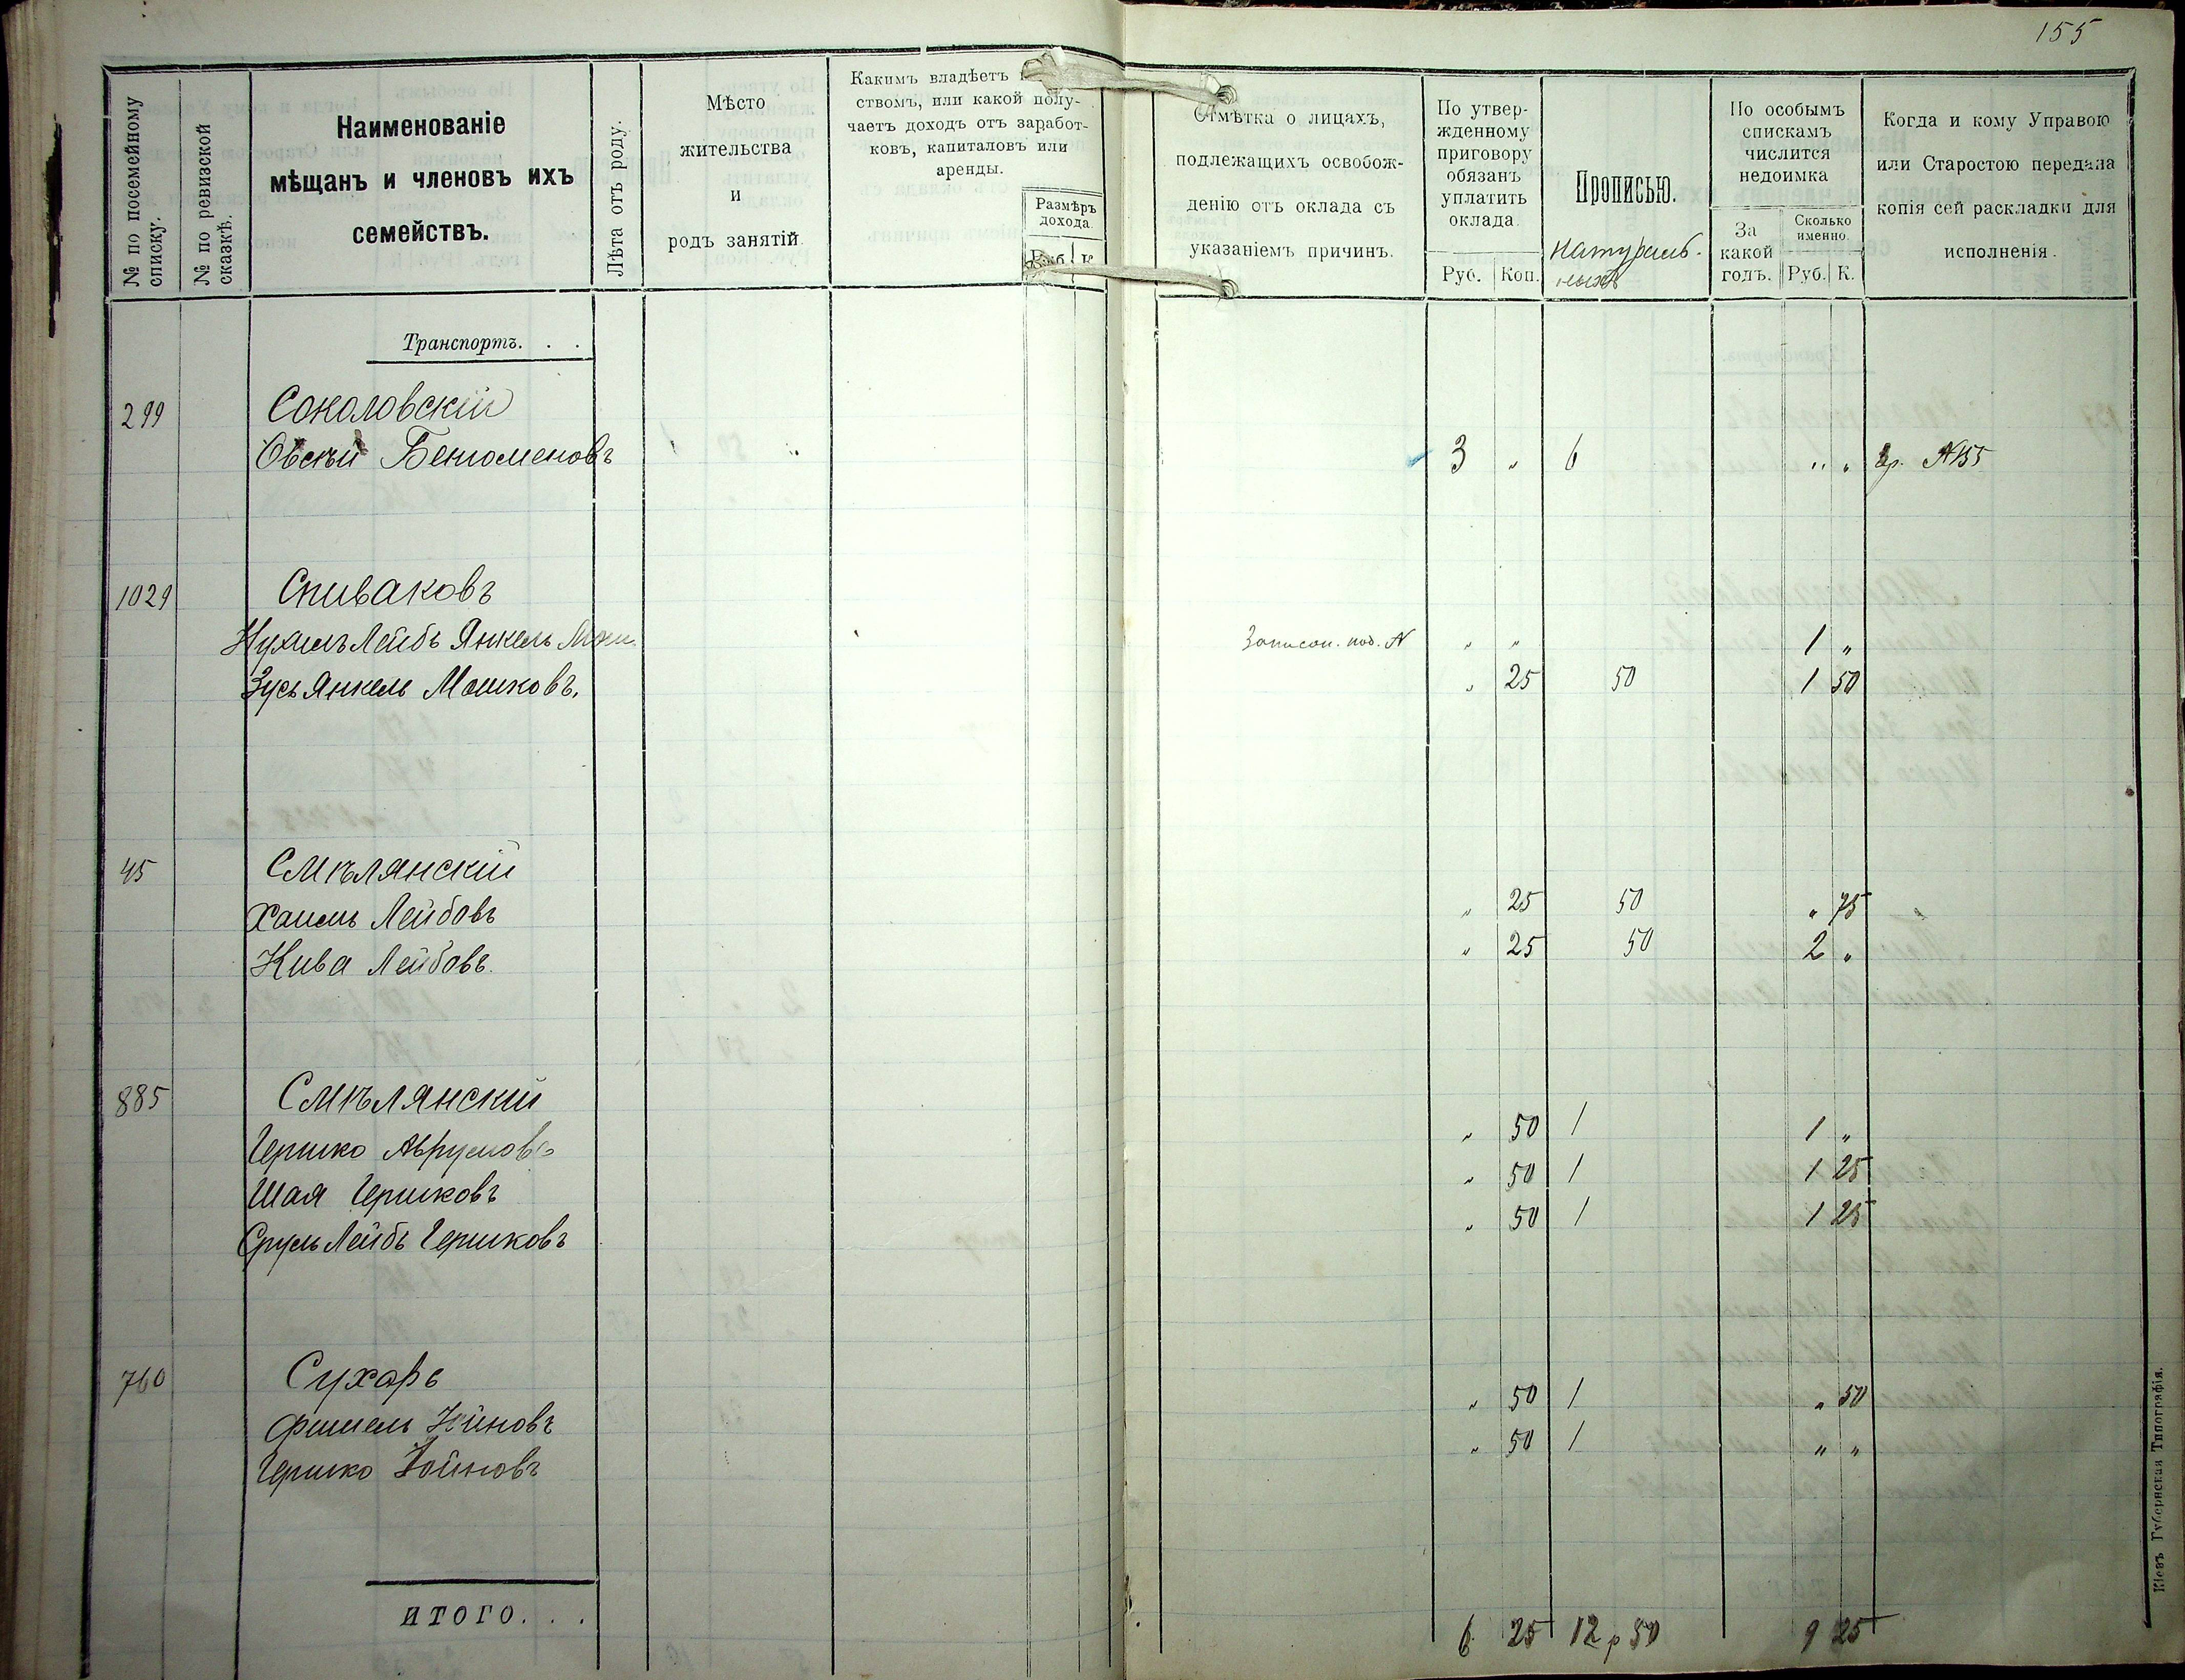 155
№ по посемейному списку.
№ по ревизской сказкѣ.
Наименованіе
мѣщанъ и членовъ ихъ
семействъ.
Лѣта отъ роду.
Мѣсто
жительства
и
родъ занятій.
Какимъ владѣетъ
ствомъ, или какой полу-
чаетъ доходъ отъ заработ-
ковъ, капиталовъ или
аренды.
Размѣръ
дохода.
Руб. К.
Отмѣтка о лицахъ,
подлежащихъ освобож-
денію отъ оклада съ
указаніемъ причинъ.
По утвер-
жденному
приговору
обязанъ
уплатить
оклада.
Руб. Коп.
Прописью.
Натураль-
ныхъ
По особымъ
спискамъ
числится
недоимка
За
какой
годъ.
Сколько
именно.
Руб. К.
Когда и кому Управою
или Старостою передана
копія сей раскладки для
исполненія.
Транспортъ. . .
299 Соколовскій
Овсѣй Беньоменовъ 3 „ 6 „ „ №155
1029 Спиваковъ
Нухимъ Лейбъ Янкель Мош. Записан. под. № „ „ 1 „
Зусь Янкель Мошковъ. „ 25 50 1 50
45 Смѣлянскій
Хаимъ Лейбовъ „ 25 50 „ 75
Кива Лейбовъ. „ 25 50 2 „
885 Смѣлянскій
Гершко Аврумовъ „ 50 1 1 „
Шая Гершковъ „ 50 1 1 25
Сруль Лейбъ Гершковъ „ 50 1 1 25
760 Сухарь
Фишель „ 50 1 „ 50
Гершко „ 50 1 „ „
ИТОГО. . . 6 25 12 р 50 9 25
Кіевъ Губернская Типографія.